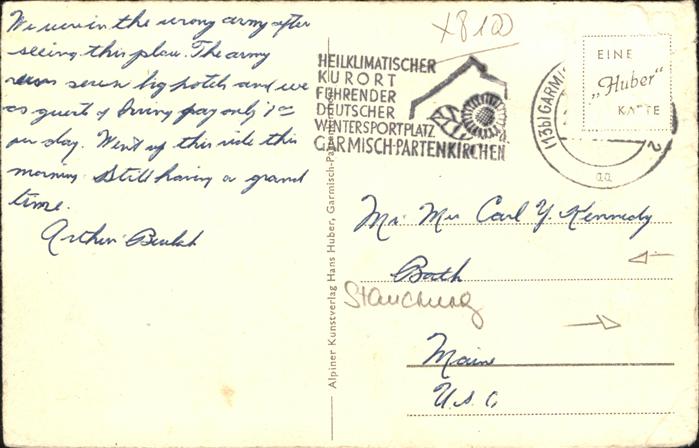 We were in the wrong army after
seeing this place. The army
runs seven big hotels and we
as guests of Irving pay only 1.00
per day. Went up this ride this
morning. Still having a grand
time.
Arthur Beulah
X8100
HEILKLIMATISCHER
KURORT
FÜHRENDER
DEUTSCHER
WINTERSPORTPLATZ
GARMISCH-PARTENKIRCHEN
(13b) GARMIS
2
aa
EINE
„Huber"
KARTE
Alpiner Kunstverlag Hans Huber, Garmisch-Partenkirchen
Mr. Mrs Carl Y. Kennedy
Bath
Stauchung
Maine
U.S.A